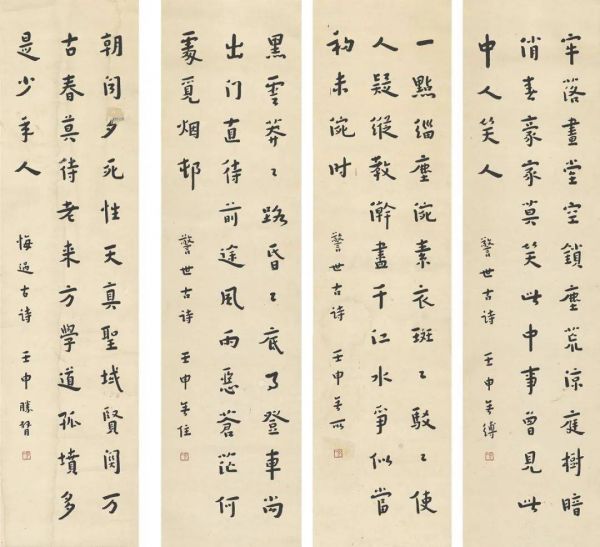 牢落畫堂空鎖塵荒涼庭樹暗
消春豪家莫笑此中事曾見此
中人笑人
警世古诗 壬申 無縛
一點緇塵涴素衣斑〻駁〻使
人疑縱教澣盡千江水爭似當
初未涴时
警世古诗 壬申 無所
黑雲莽〻路昏〻底事登車尚
出门直待前途風雨惡蒼茫何
處覓烟邨
警世古诗 壬申 無住
朝闻夕死性天真聖域賢関万
古春莫待老来方學道孤墳多
是少年人
悔過古诗 壬申 勝臂